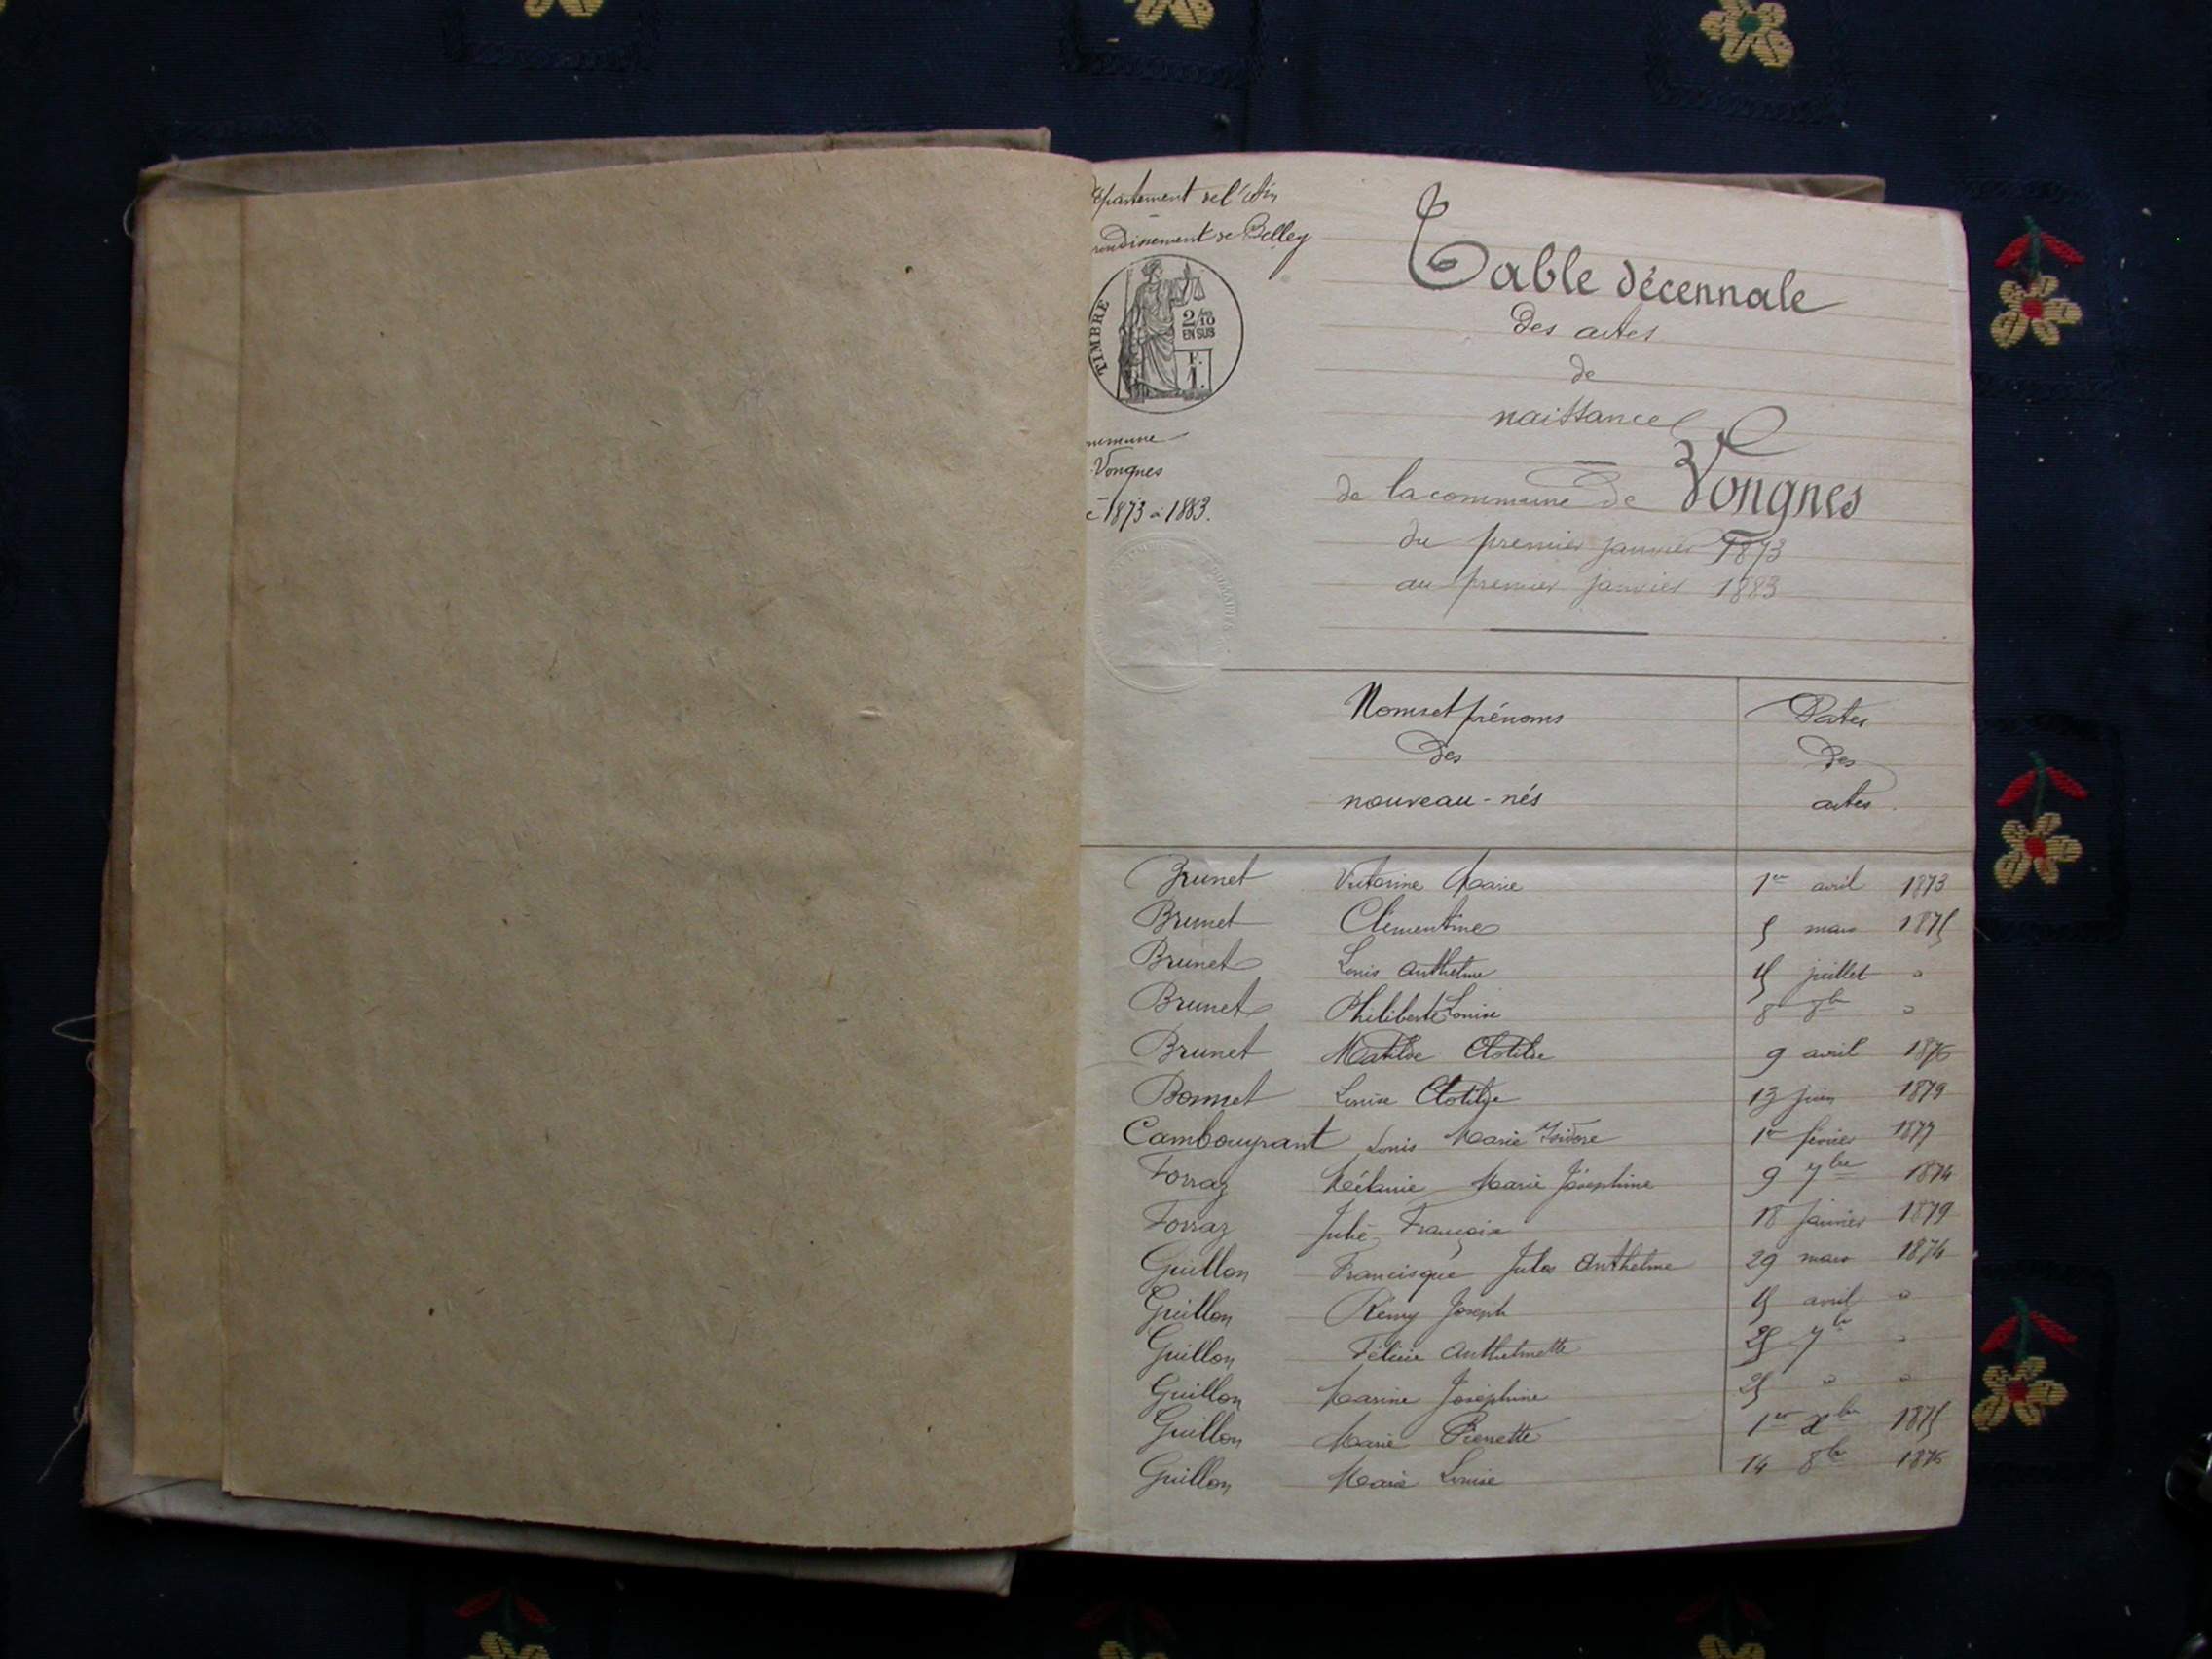 épartement de l'Ain
rondissement de Belley
TIMBRE
2/10
EN SUS
F.
1.
mmune
Vongnes
1873 à 1883.
Table décennale
des actes
de
naissance
de la commune de Vongnes
du premier janvier 1873
au premier janvier 1883
Noms et prénoms
des
nouveau-nés
Dates
des
actes
Brunet Victorine Marie 1er avril 1873
Brunet Clémentine 5 mars 1875
Brunet Louis Anthelme 15 juillet "
Brunet Philiberte Louise 8 8bre "
Brunet Matilde Clotilde 9 avril 1876
Bonnet Louise Clotilde 13 juin 1879
Camboujrant Louis Marie Isidore 1er février 1877
Forraz Mélanie Marie Joséphine 9 7bre 1874
Forraz Julie Françoise 18 janvier 1879
Guillon Francisque Jules Anthelme 29 mars 1874
Guillon Rémy Joseph 15 avril "
Guillon Félicie Anthelmette 25 7bre "
Guillon Marine Joséphine 25 " "
Guillon Marie Pierrette 1er Xbre 1875
Guillon Marie Louise 14 8bre 1876